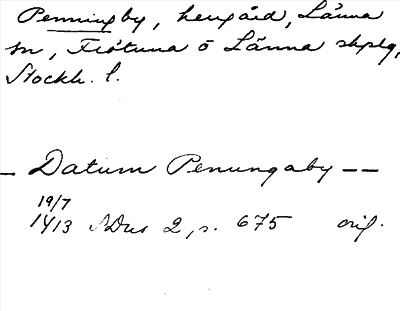 Penningby, herrgård, Länna
sn, Frötuna o Länna skplg,
Stockh. l.
— Datum Penungaby — —
19/7
1413 SDns 2, s. 675 orig.